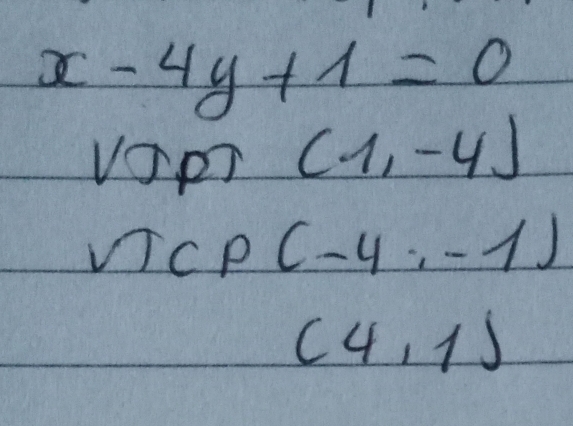 x - 4y + 1 = 0
VTPT (1, -4)
VTCP (-4; -1)
(4, 1)